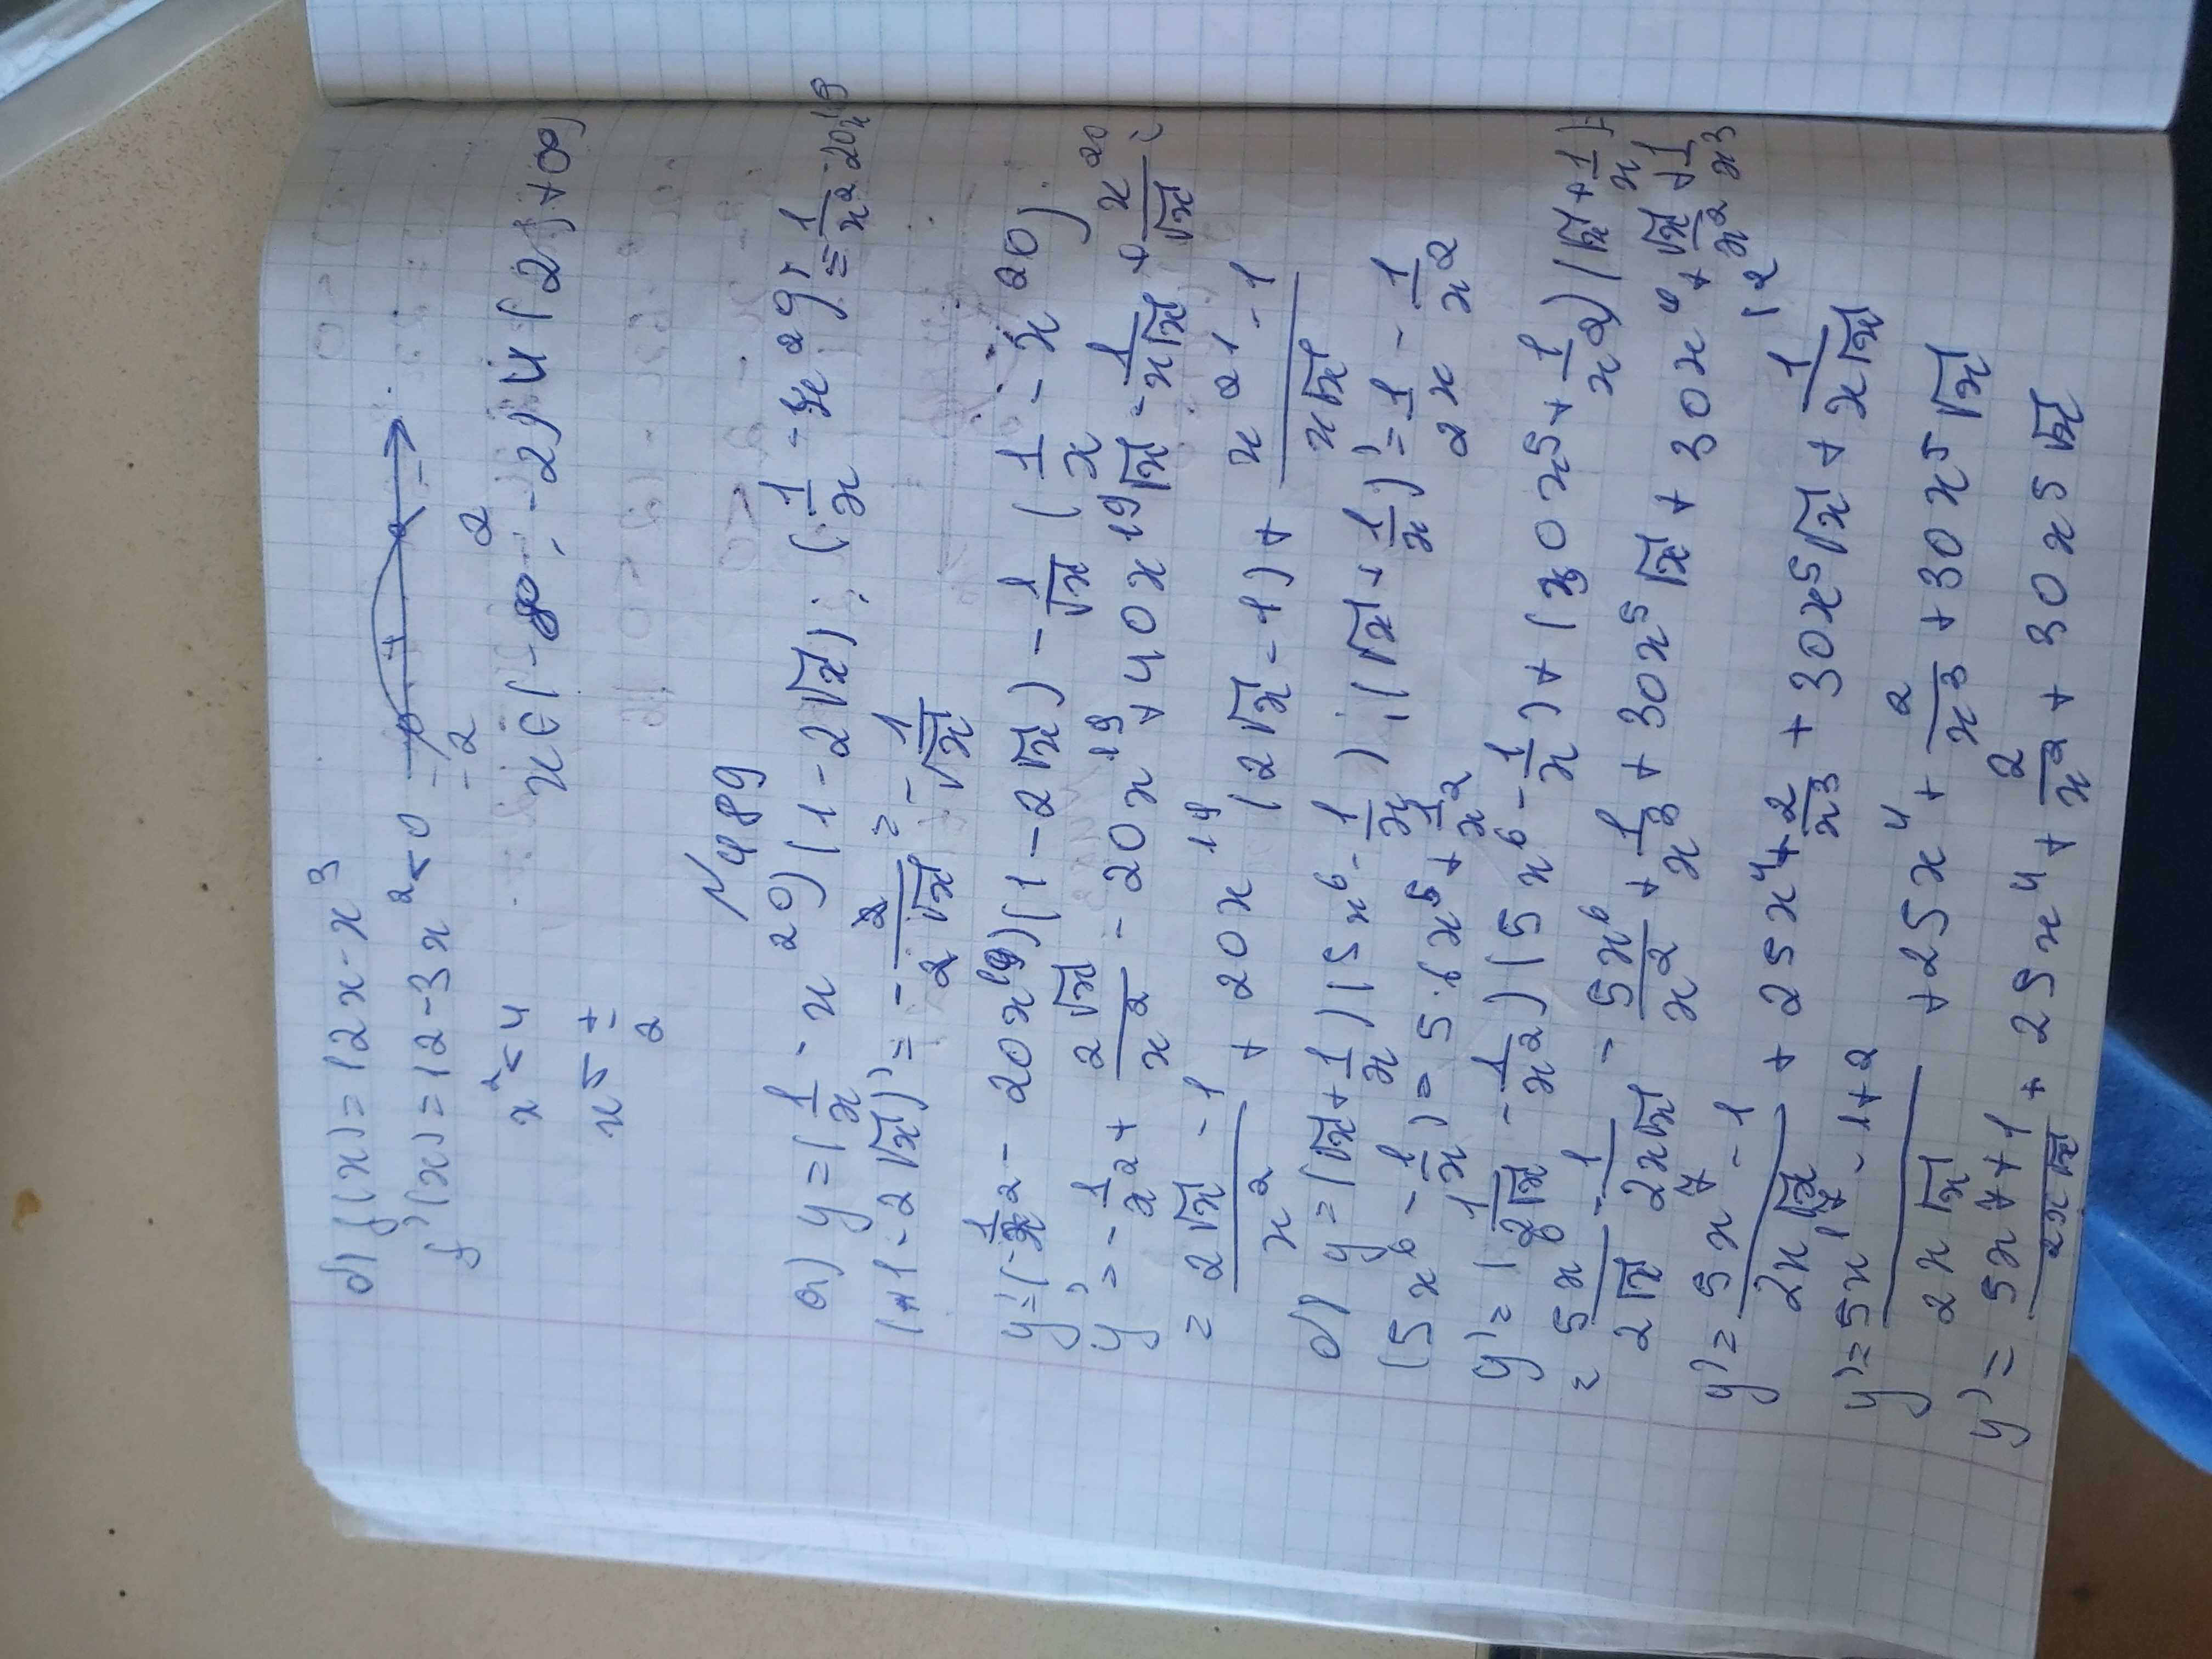 б) f(x) = 12x - x³
f'(x) = 12 - 3x² < 0
x² < 4
x ± 2
-2 2
x ∈ (-∞; -2) и (2; +∞)
N 489
а) y = (1/x - x²⁰)(1 - 2√x); (1/x - x²⁰)' = 1/x² - 20x¹⁹
(1 - 2√x)' = - 2/(2√x) = - 1/√x
y' = (-1/x² - 20x¹⁹)(1 - 2√x) - 1/√x (1/x - x²⁰)
y' = - 1/x² + 2√x/x² - 20x¹⁹ + 40x¹⁹√x - 1/(x√x) + x²⁰/√x
= (2√x - 1)/x² + 20x¹⁹ (2√x - 1) + (x²¹ - 1)/(x√x)
б) y = (√x + 1/x)(5x⁶ - 1/x); (√x + 1/x)' = 1/(2x) - 1/x²
(5x⁶ - 1/x) = 5·6x⁵ + 1/x²
y' = (1/(2√x) - 1/x²)(5x⁶ - 1/x) + (30x⁵ + 1/x²)(√x + 1/x) =
= 5x⁶/(2√x) - 1/(2x√x) - 5x⁶/x² + 1/x³ + 30x⁵√x + 30x⁶ + √x/x² + 1/x³
y' = (5x⁷ - 1)/(2x√x) + 25x⁴ + 2/x³ + 30x⁵√x + 1/(x√x)
y' = (5x⁷ - 1 + 2)/(2x√x) + 25x⁴ + 2/x³ + 30x⁵√x
y' = (5x⁷ + 1)/(2x√x) + 25x⁴ + 2/x² + 30x⁵√x